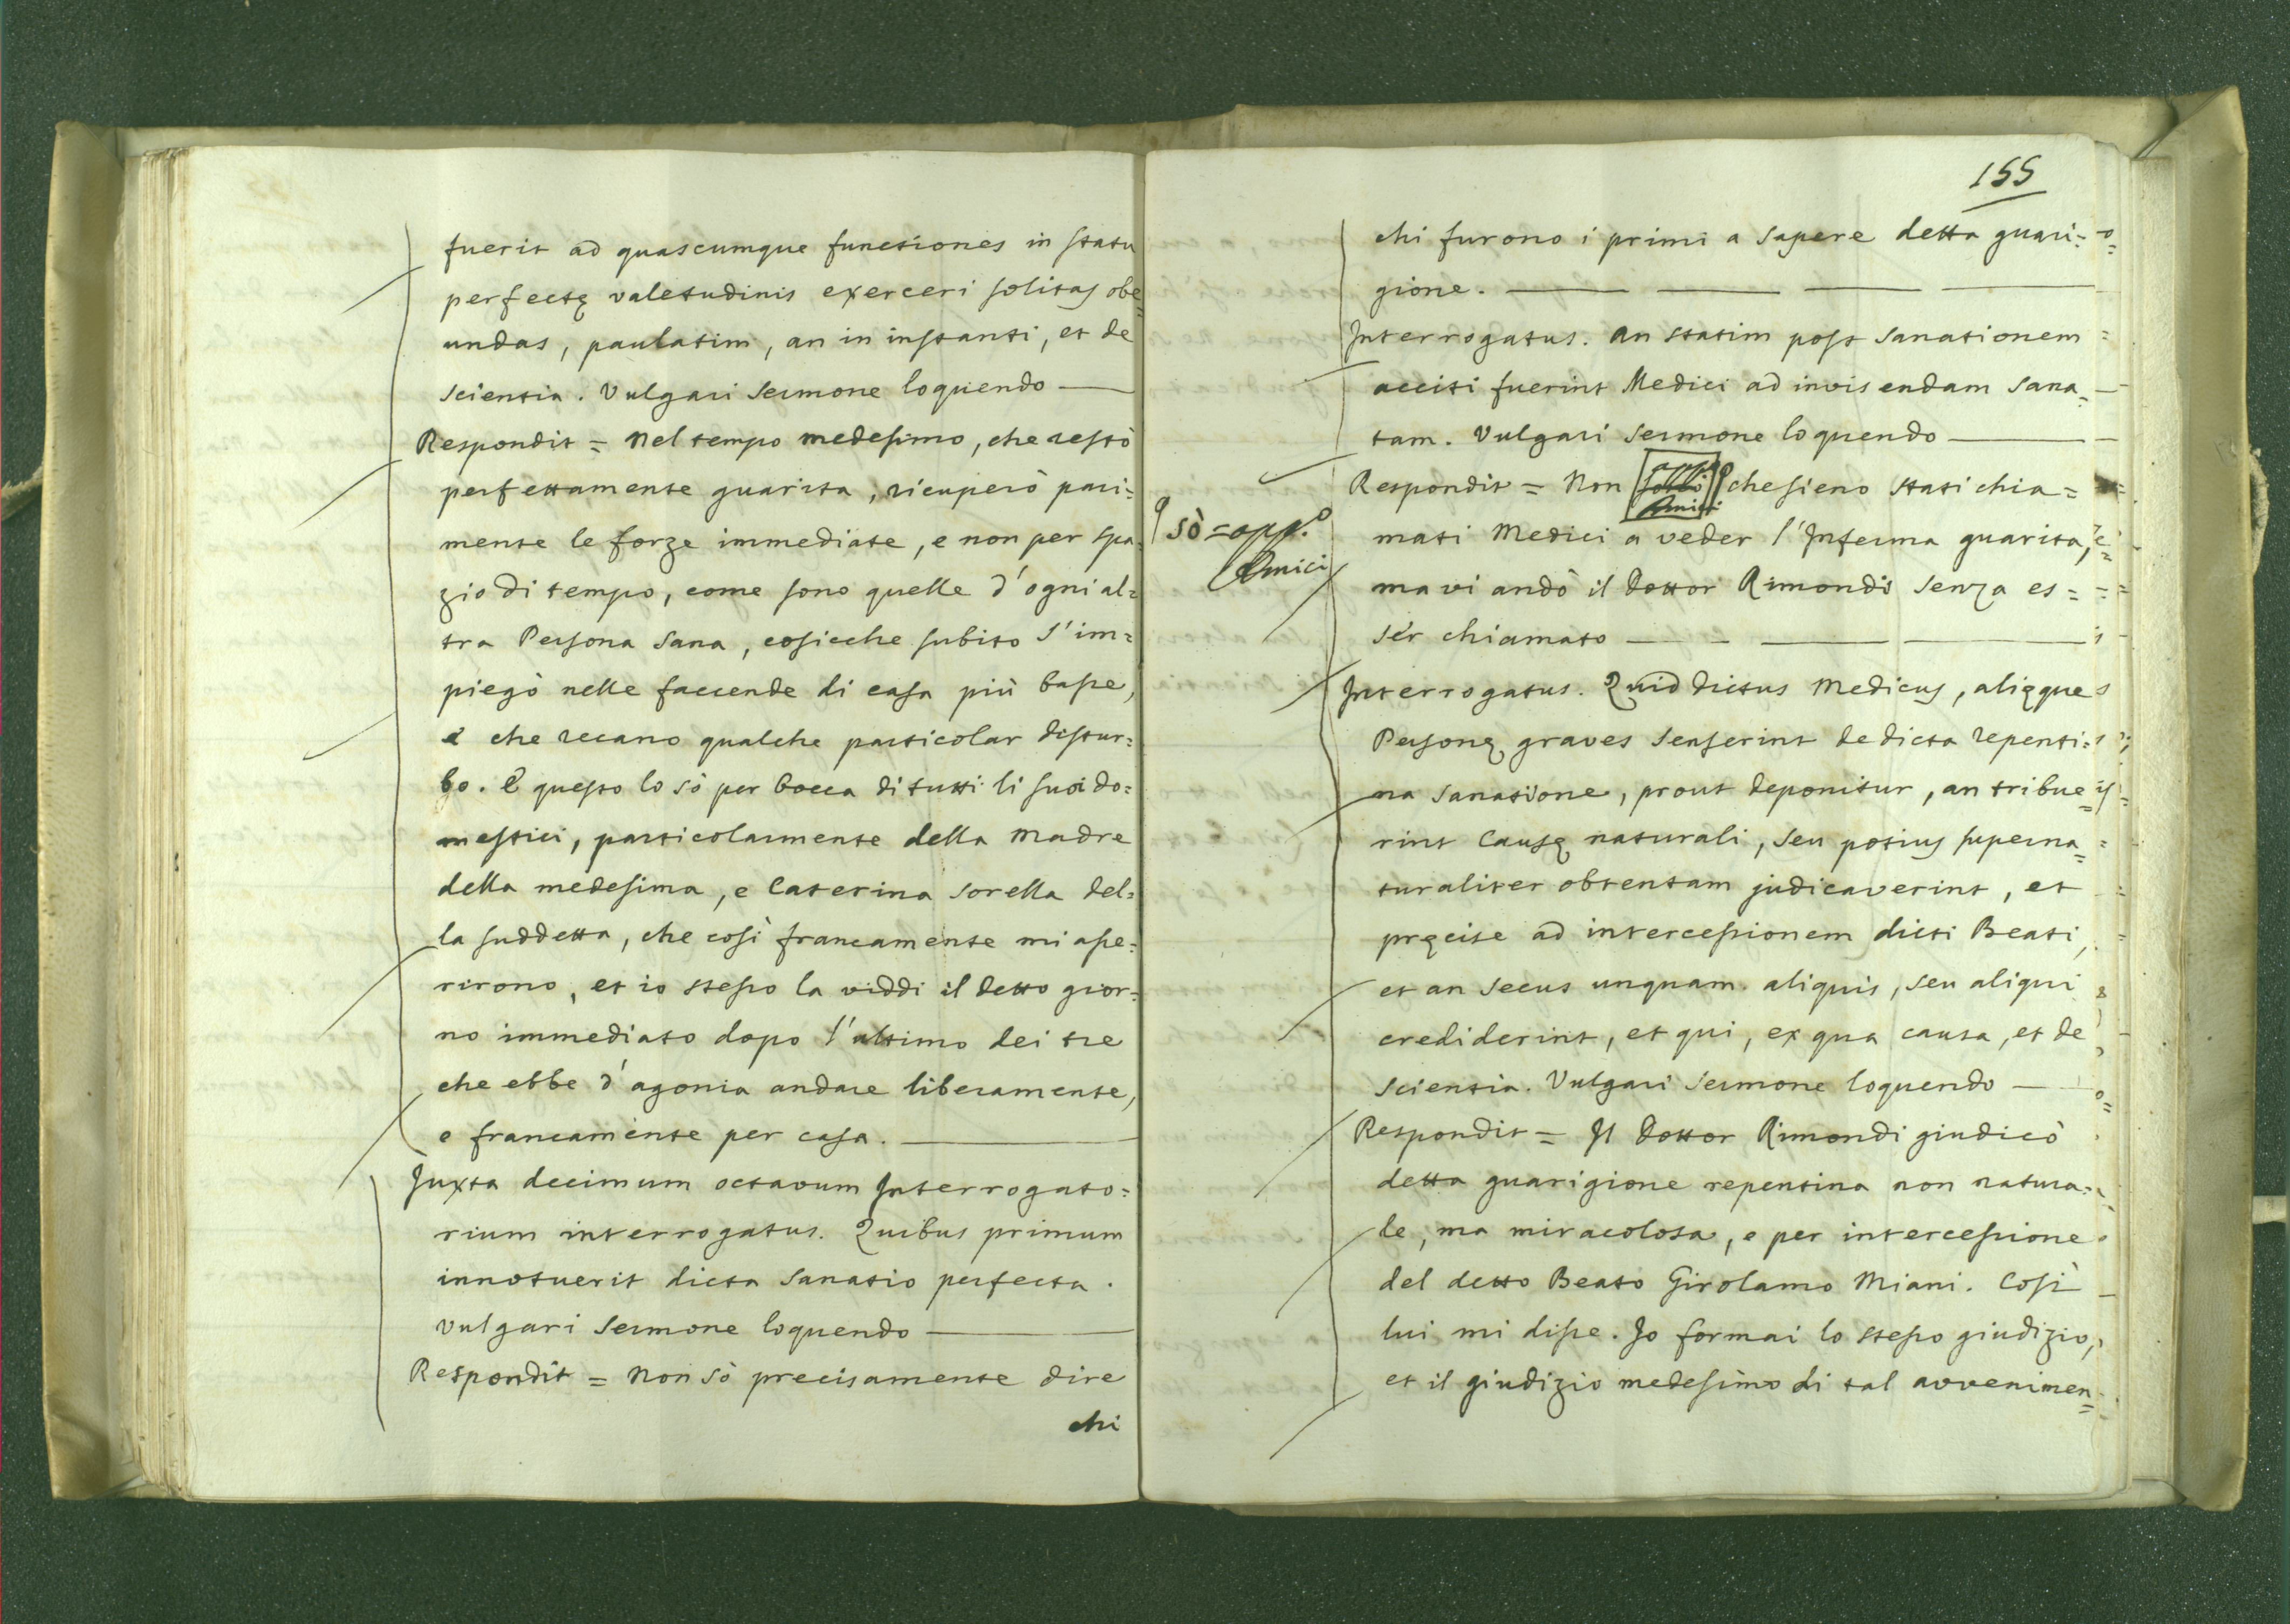 fuerit ad quascumque functiones in statu
perfectę valetudinis exerceri solitas obe=
undas, paulatim, an in instanti, et de
scientia. Vulgari sermone loquendo
Respondit = Nel tempo medesimo, che restò
perfettamente guarita, ricuperò pari=
mente le forze immediate, e non per spa=
zio di tempo, come sono quelle d'ogni al=
tra Persona sana, cosicche subito s'im=
piegò nelle faccende di casa più basse,
e che recano qualche particolar distur=
bo. E questo lo sò per bocca di tutti li suoi do=
mestici, particolarmente della Madre
della medesima, e Caterina sorella del=
la suddetta, che così francamente mi asse=
rirono, et io stesso la viddi il detto gior=
no immediato dopo l'ultimo dei tre
che ebbe d'agonia andare liberamente,
e francamente per casa.
Juxta decimum octavum Interrogato=
rium interrogatus. Quibus primum
innotuerit dicta sanatio perfecta.
Vulgari sermone loquendo
Respondit = Non sò precisamente dire
chi
155
chi furono i primi a sapere detta guari=
gione.
Interrogatus. An statim post sanationem
acciti fuerint Medici ad invisendam sana=
tam. Vulgari sermone loquendo
Respondit = Non che sieno stati chia=
sò = opp.º
Amici
mati Medici a veder l'Inferma guarita,
ma vi andò il Dottor Rimondi senza es=
ser chiamato
Interrogatus. Quid dictus Medicus, alięque
Personę graves senserint de dicta repenti=
na sanatione, prout deponitur, an tribue=
rint Causę naturali, seu potius superna=
turaliter obtentam judicaverint, et
pręcise ad intercessionem dicti Beati,
et an secus unquam aliquis, seu aliqui
crediderint, et qui, ex qua causa, et de
scientia. Vulgari sermone loquendo
Respondit = Il Dottor Rimondi giudicò
detta guarigione repentina non natura=
le, ma miracolosa, e per intercessione
del detto Beato Girolamo Miani. Così
lui mi disse. Io formai lo stesso giudizio,
et il giudizio medesimo di tal avvenimen=